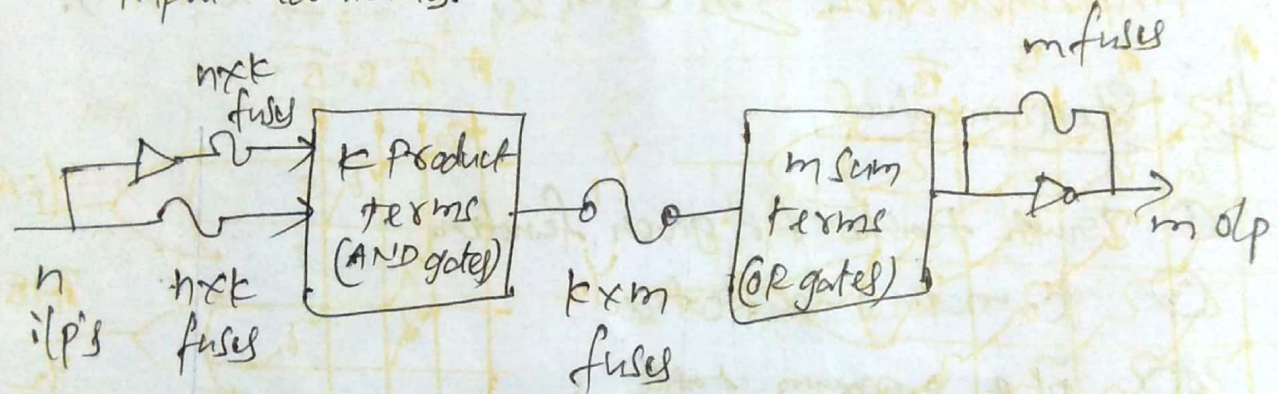 m fuses
n×k
fuses
k Product
terms
(AND gates)
m Sum
terms
(OR gates)
m o/p
n
i/p's
n×k
fuses
k×m
fuses